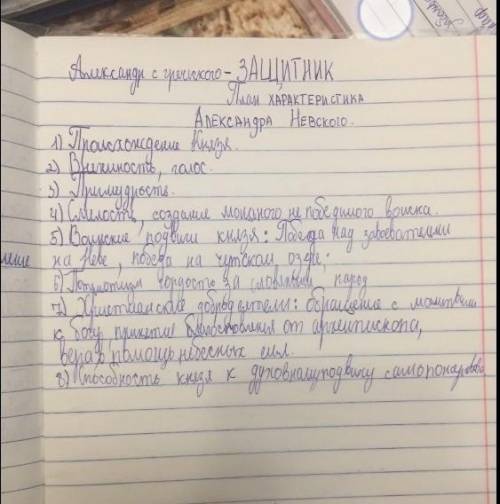 Александр с греческого - ЗАЩИТНИК
План характеристика
Александра Невского.
1) Происхождение князя.
2) Внешность, голос.
3) Премудрость.
4) Смелость, создание непобедимого войска.
5) Воинские подвиги князя: Победа над завоевателями
на Неве, победа на чутском озере;
6) Патриотизм гордость за народ
7) Христианские добродетели: обращение с молитвами
к богу, принятие благословления от архиепископа,
вера в помощь небесных сил.
8) Способность князя к духовному подвигу